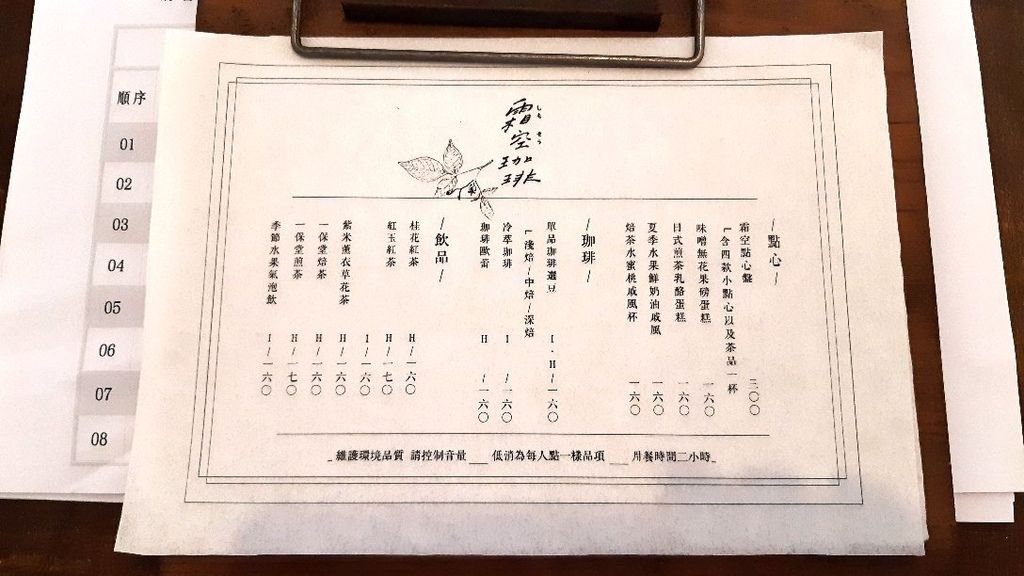 順序
01
02
03
04
05
06
07
08
霜空珈琲
しも そら
—點心—
霜空點心盤 三〇〇
「含四款小點心以及茶品一杯
味噌無花果磅蛋糕 一六〇
日式煎茶乳酪蛋糕 一六〇
夏季水果鮮奶油戚風 一六〇
焙茶水蜜桃戚風杯 一六〇
—珈琲—
單品珈琲選豆 I.H/一六〇
「淺焙/中焙/深焙
冷萃珈琲 I /一六〇
珈琲歐蕾 H /一六〇
—飲品—
桂花紅茶 H/一六〇
紅玉紅茶 H/一七〇
I/一六〇
紫米薰衣草花茶 H/一六〇
一保堂焙茶 H/一六〇
一保堂煎茶 H/一七〇
季節水果氣泡飲 I/一六〇
_ 維護環境品質 請控制音量 __ 低消為每人點一樣品項 __ 用餐時間二小時_